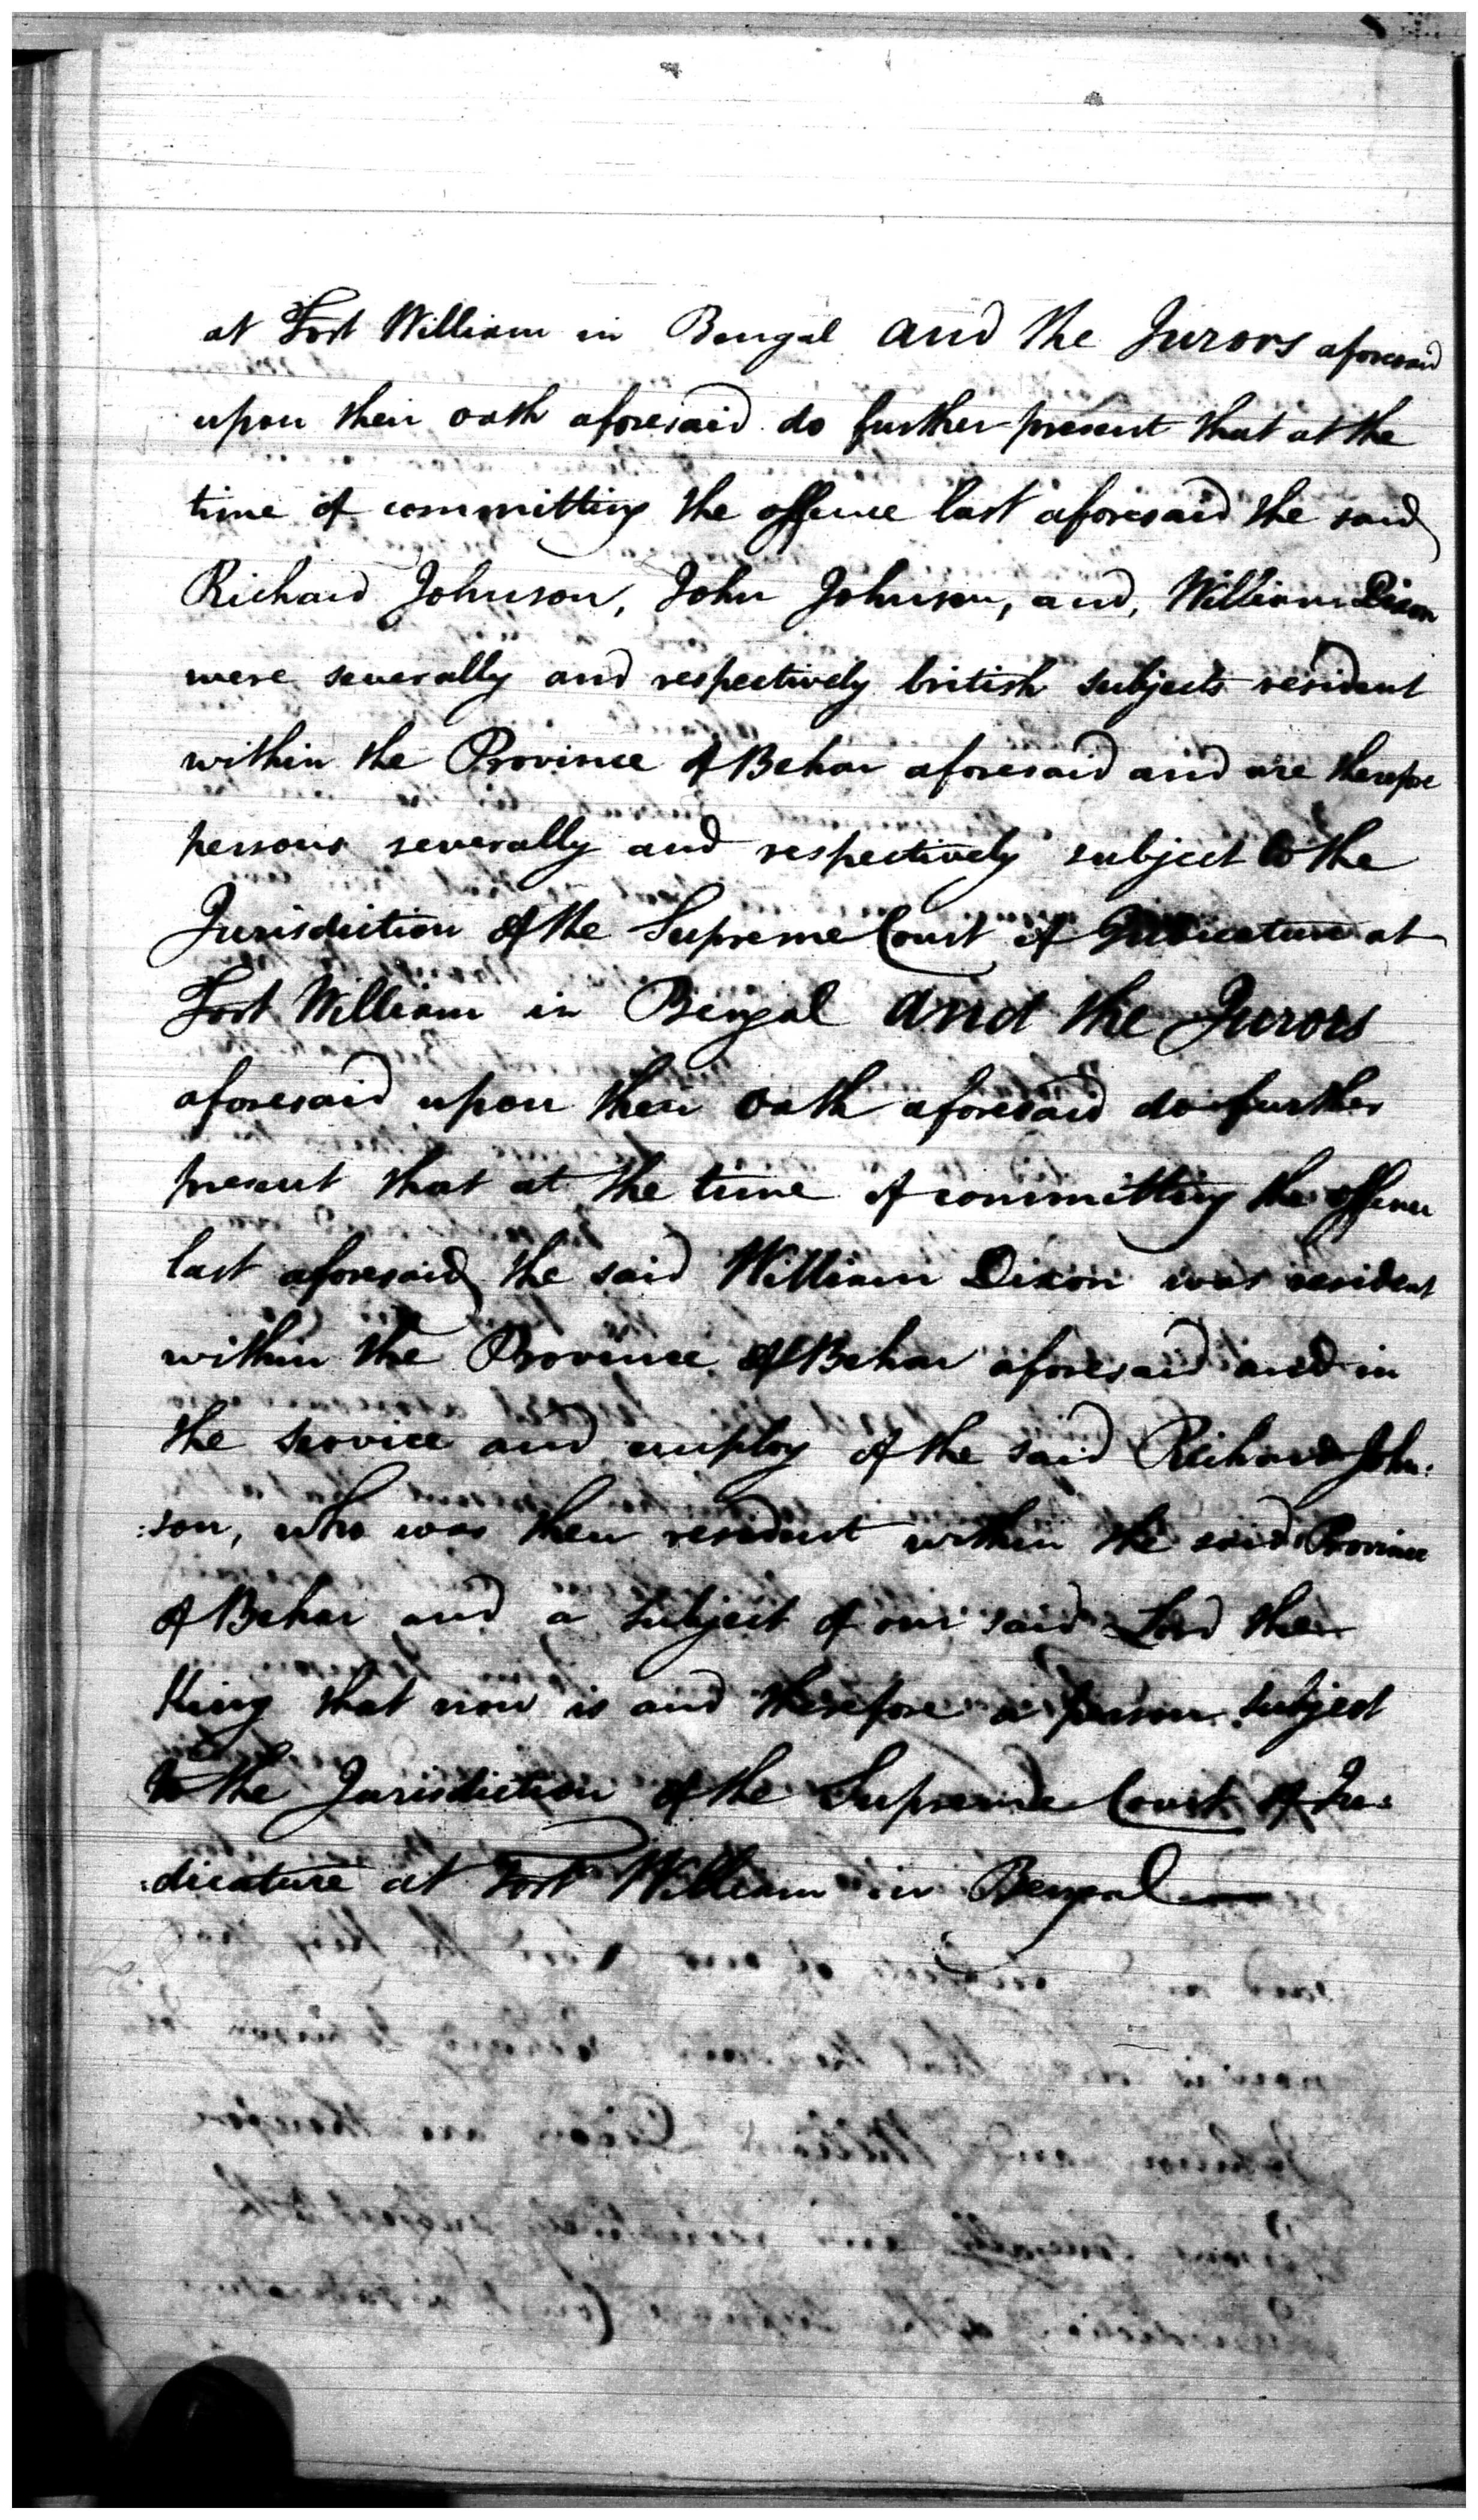 at Fort William in Bengal and the Jurors aforesaid
upon their oath aforesaid do further present that at the
time of committing the offence last aforesaid the said
Richard Johnson, John Johnson, and, William Dixon
were severally and respectively british subjects resident
within the Province of Behar aforesaid and are therefore
persons severally and respectively subject to the
Jurisdiction of the Supreme Court of Judicature at
Fort William in Bengal and the Jurors
aforesaid upon their oath aforesaid do further
present that at the time of committing the offence
last aforesaid the said William Dixon was resident
within the Province of Behar aforesaid and in
the service and employ of the said Richard John:
:son, who was then resident within the said Province
of Behar and a subject of our said Lord the
King that now is and therefore a person subject
to the Jurisdiction of the Supreme Court of Ju:
:dicature at Fort William in Bengal